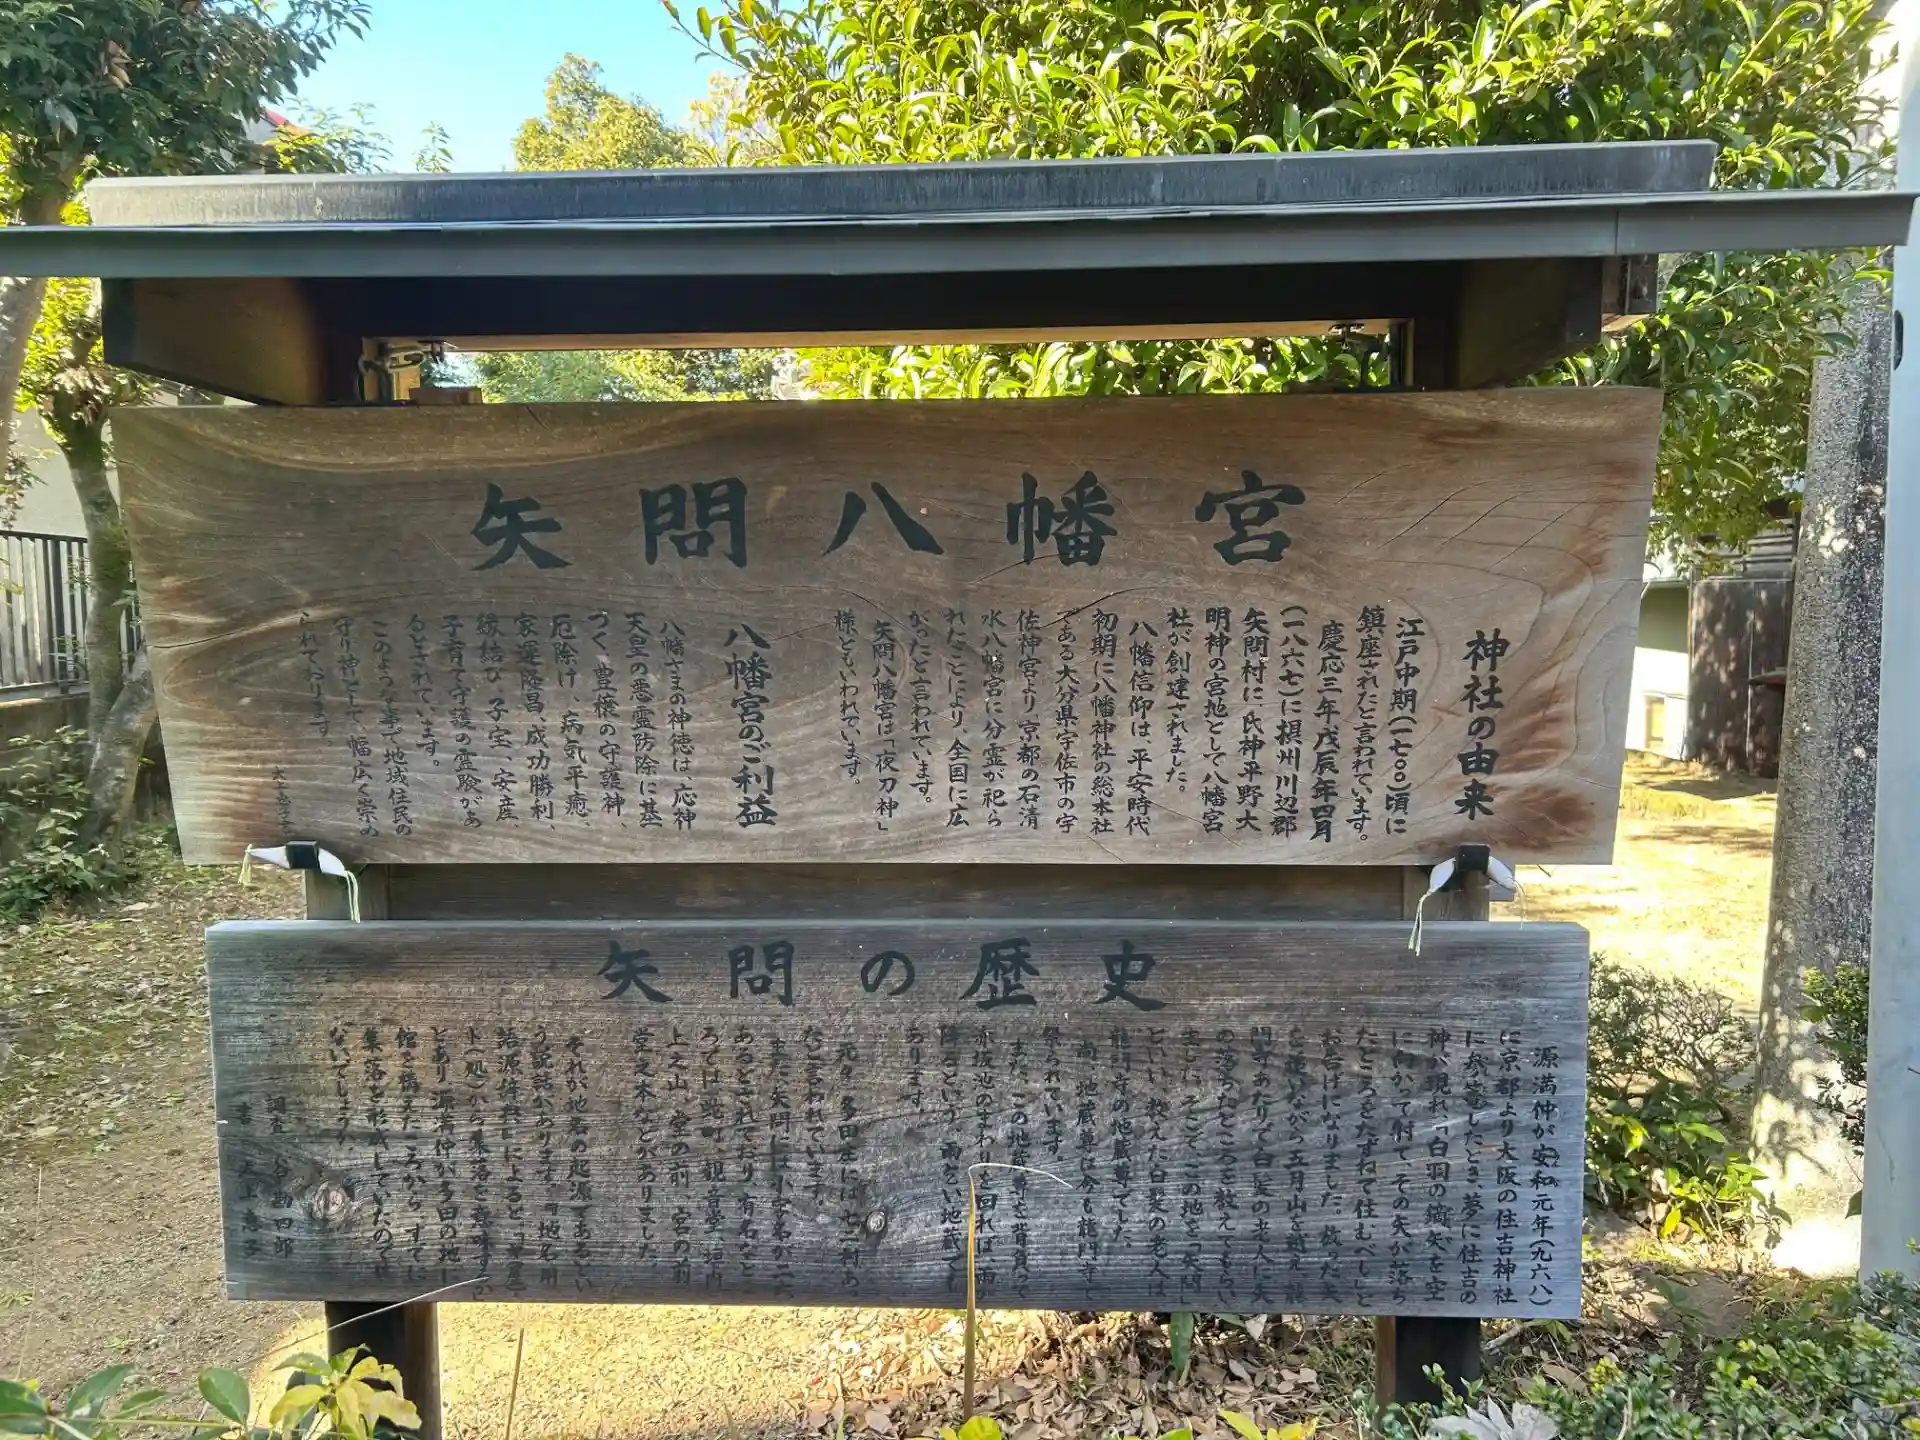 矢問八幡宮
神社の由来
江戸中期(一七〇〇)頃に
鎮座されたと言われています。
慶応三年戊辰年四月
(一八六七)に摂州川辺郡
矢問村に、氏神平野大
明神の宮地として八幡宮
社が創建されました。
八幡信仰は、平安時代
初期に八幡神社の総本社
である大分県宇佐市の宇
佐神宮より京都の石清
水八幡宮に分霊が祀ら
れたことにより、全国に広
がったと言われています。
矢問八幡宮は「夜刀神」
様ともいわれています。
八幡宮のご利益
八幡さまの神徳は、応神
天皇の悪霊防除に基
づく、豊穣の守護神、
厄除け、病気平癒、
家運隆昌、成功勝利、
縁結び、子宝、安産
子育て守護の霊験があ
るとされています。
このような事で地域住民の
守り神として、幅広く崇め
られております。
矢問の歴史
源満仲が安和元年(九六八)
に京都より大阪の住吉神社
に参籠したとき、夢に住吉の
神が現れ「白羽の鏑矢を空
に向かって射て、その矢が落ち
たところをたずねて住むべし」と
お告げになりました。放った矢
を追いながら五月山を越え、龍
門寺あたりで白髪の老人に矢
の落ちたところを教えてもらい
ました。そこで、この地を「矢問」
といい、教えた白髪の老人は
龍門寺の地蔵尊でした。
尚、地蔵尊は今も龍門寺で
祭られています。
また、この地蔵尊を背負って
赤坂池のまわりを回れば、雨が
降るという、雨乞い地蔵でも
あります。
元々、多田庄には七二村あっ
たと言われています。
また、矢問には小字名が二六
あるとされており、有名なとこ
ろでは蛇町、観音堂、垣内、
上之山、堂の前、宮の前
堂之本などがありました。
それが地名の起源であるとい
う説話があります。「地名用
語源辞典」によると、
ト(処)から集落を意味する
とあり、源満仲が多田の地に
館を構えたころから、すでに
集落を形成していたのでは
ないでしょうか。
調査 谷勘四郎
書 井上恵子